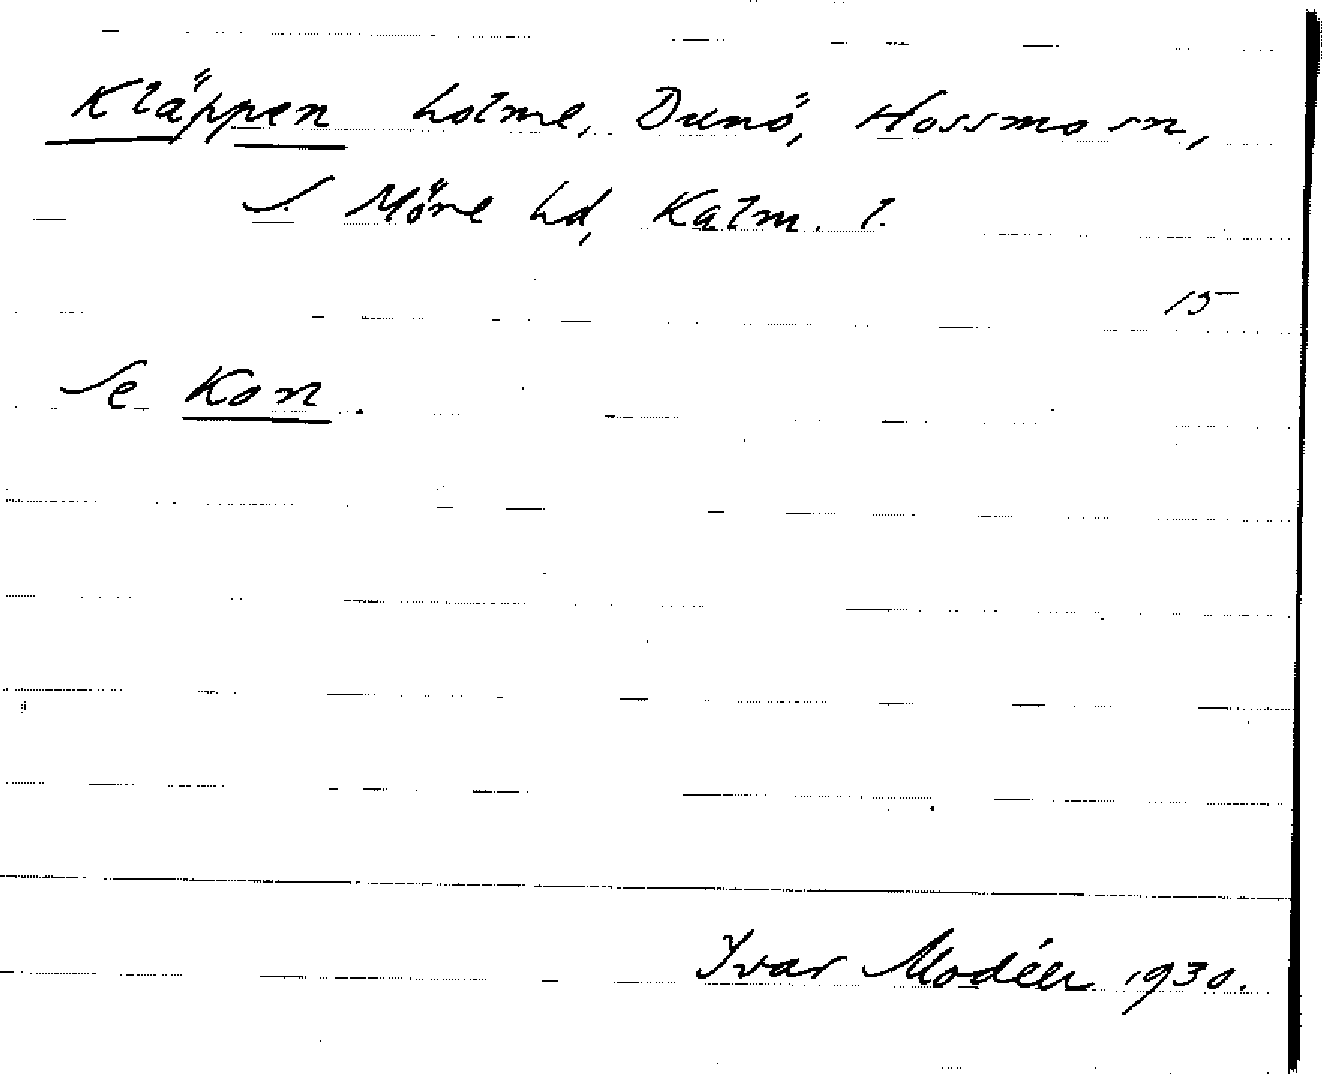 Kläppen holme, Dunö, Hossmo sn,
S. Möre hd, Kalm. l.
15
Se Kon.
Ivar Modéer 1930.